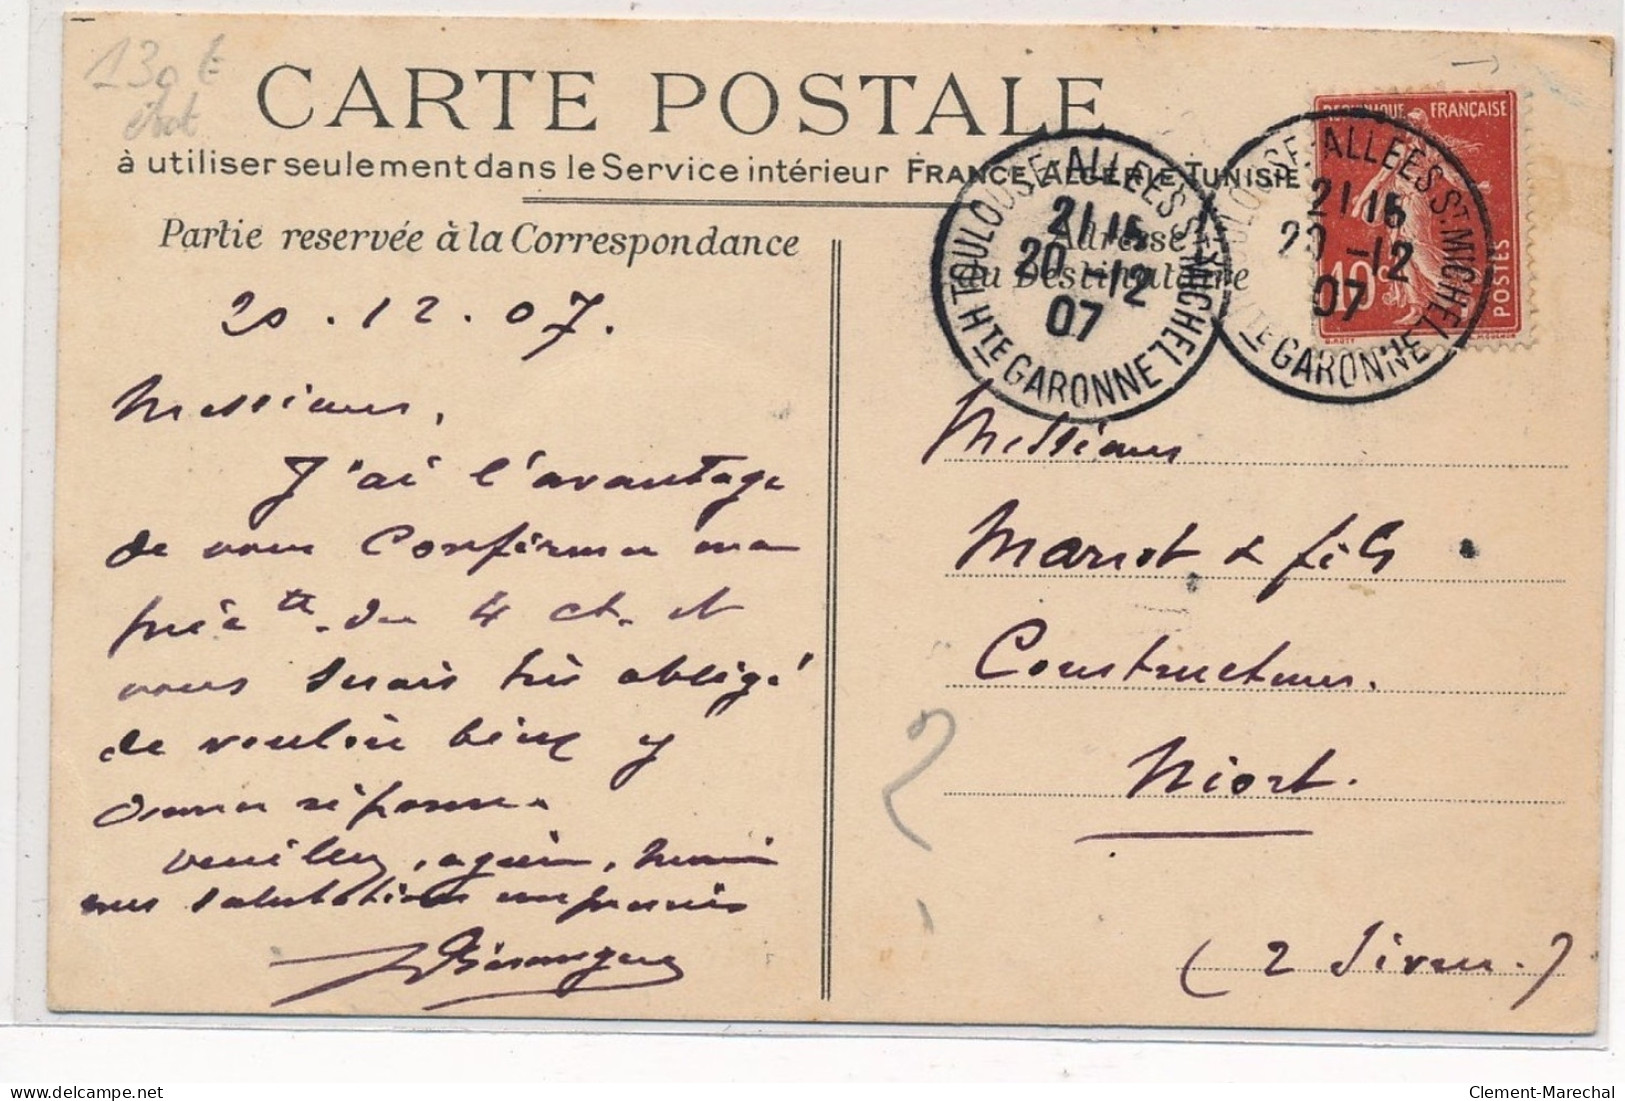 130 €
état
CARTE POSTALE
à utiliser seulement dans le Service intérieur FRANCE ALGÉRIE TUNISIE
Partie reservée à la Correspondance
20.12.07.
Messieurs,
J'ai l'avantage
de vous Confirmer ma
préc te. du 4 ct. et
vous serais très obligé
de vouloir bien y
donner réponse.
Veuillez, agréer, Messieurs
mes salutations empressées
Adresse
du Destinataire
TOULOUSE-ALLEES ST MICHEL
21 15
20 -12
07
HTE GARONNE
TOULOUSE-ALLEES ST MICHEL
21 15
20 -12
07
HTE GARONNE
REPUBLIQUE FRANÇAISE
10 c
POSTES
Messieurs
& fils
Constructeurs.
Niort.
(2 Sèvres.)
delcampe.net
Clement-Marechal